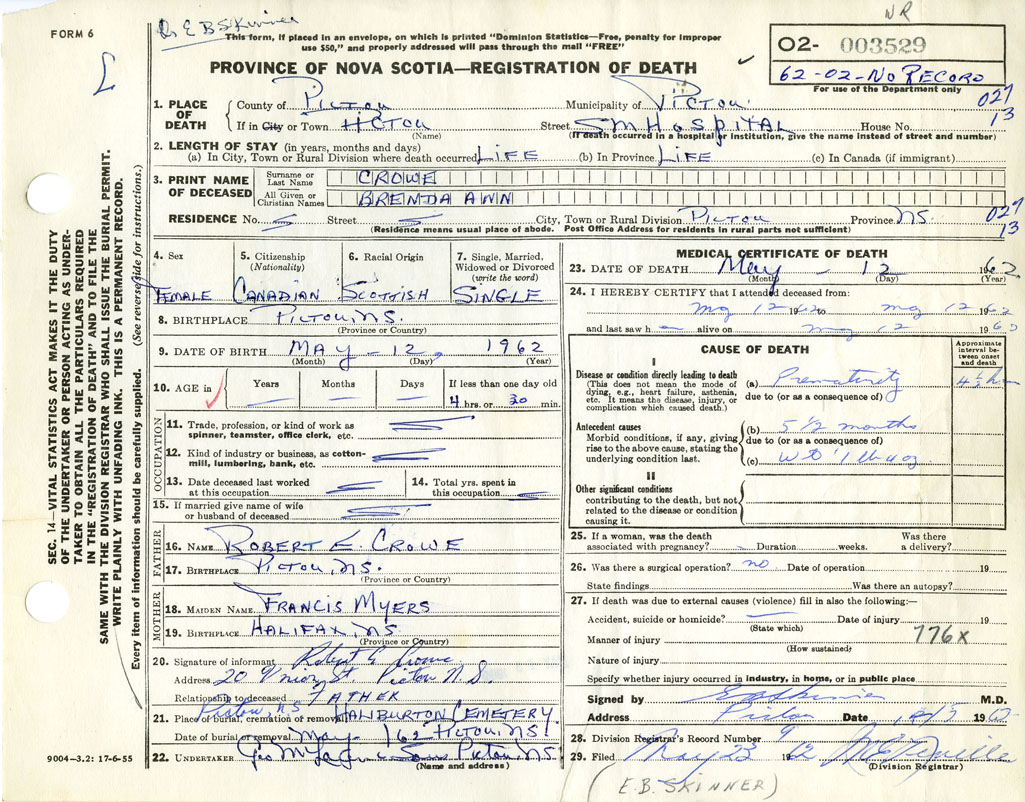 NR
Dr E B Skinner
FORM 6
This form, if placed in an envelope, on which is printed "Dominion Statistics—Free, penalty for improper
use $50," and properly addressed will pass through the mail "FREE"
02- 003529
62-02-No RECORD
For use of the Department only
PROVINCE OF NOVA SCOTIA—REGISTRATION OF DEATH
027
13
1. PLACE OF DEATH
County of PICTOU Municipality of PICTOU
If in City or Town PICTOU Street SM HOSPITAL House No.
(Name) (If death occurred in a hospital or institution, give the name instead of street and number)
2. LENGTH OF STAY (in years, months and days)
(a) In City, Town or Rural Division where death occurred LIFE (b) In Province LIFE (c) In Canada (if immigrant)
3. PRINT NAME OF DECEASED
Surname or Last Name CROWE
All Given or Christian Names BRENDA ANN
RESIDENCE No. Street City, Town or Rural Division PICTOU Province NS.
027
13
(Residence means usual place of abode. Post Office Address for residents in rural parts not sufficient)
4. Sex
FEMALE
5. Citizenship
(Nationality)
CANADIAN
6. Racial Origin
SCOTTISH
7. Single, Married,
Widowed or Divorced
(write the word)
SINGLE
8. BIRTHPLACE PICTOU, NS.
(Province or Country)
9. DATE OF BIRTH MAY - 12, 1962
(Month) (Day) (Year)
10. AGE in Years Months Days If less than one day old
4 hrs. or 30 min.
OCCUPATION
11. Trade, profession, or kind of work as
spinner, teamster, office clerk, etc.
12. Kind of industry or business, as cotton-
mill, lumbering, bank, etc.
13. Date deceased last worked
at this occupation
14. Total yrs. spent in
this occupation
15. If married give name of wife
or husband of deceased
FATHER
16. NAME ROBERT E. CROWE
17. BIRTHPLACE PICTOU, NS.
(Province or Country)
MOTHER
18. MAIDEN NAME FRANCIS MYERS
19. BIRTHPLACE HALIFAX, NS
(Province or Country)
20. Signature of informant Robert E Crowe
Address 20 St. Pictou N.S.
Relationship to deceased FATHER
Pictou, NS
21. Place of burial, cremation or removal HALIBURTON CEMETERY
Date of burial or removal May - 162 PICTOU, NS
22. UNDERTAKER Geo Pictou, NS.
(Name and address)
9004—3.2: 17-6-55
MEDICAL CERTIFICATE OF DEATH
23. DATE OF DEATH May - 12 1962
(Month) (Day) (Year)
24. I HEREBY CERTIFY that I attended deceased from:
May 12 1962 to May 12 1962
and last saw h alive on May 12 196
CAUSE OF DEATH
Approximate
interval be-
tween onset
and death
I
Disease or condition directly leading to death
(This does not mean the mode of
dying, e.g., heart failure, asthenia,
etc. It means the disease, injury, or
complication which caused death.)
(a) Prematurity 4½ h
due to (or as a consequence of)
Antecedent causes
Morbid conditions, if any, giving
rise to the above cause, stating the
underlying condition last.
(b) 5 1/2 months
due to (or as a consequence of)
(c) Wt 1 lb
II
Other significant conditions
contributing to the death, but not
related to the disease or condition
causing it.
25. If a woman, was the death
associated with pregnancy? Duration weeks. Was there
a delivery?
26. Was there a surgical operation? no Date of operation 19
State findings Was there an autopsy?
27. If death was due to external causes (violence) fill in also the following:—
Accident, suicide or homicide? Date of injury 19
(State which)
776x
Manner of injury
(How sustained)
Nature of injury
Specify whether injury occurred in industry, in home, or in public place
Signed by E B Skinner M.D.
Address Pictou Date 19 62
28. Division Registrar's Record Number 9
29. Filed May 23 19 62
(Division Registrar)
(E.B. SKINNER)
SEC. 14—VITAL STATISTICS ACT MAKES IT THE DUTY
OF THE UNDERTAKER OR PERSON ACTING AS UNDER-
TAKER TO OBTAIN ALL THE PARTICULARS REQUIRED
IN THE "REGISTRATION OF DEATH" AND TO FILE THE
SAME WITH THE DIVISION REGISTRAR WHO SHALL ISSUE THE BURIAL PERMIT.
WRITE PLAINLY WITH UNFADING INK. THIS IS A PERMANENT RECORD.
Every item of information should be carefully supplied. (See reverse side for instructions.)